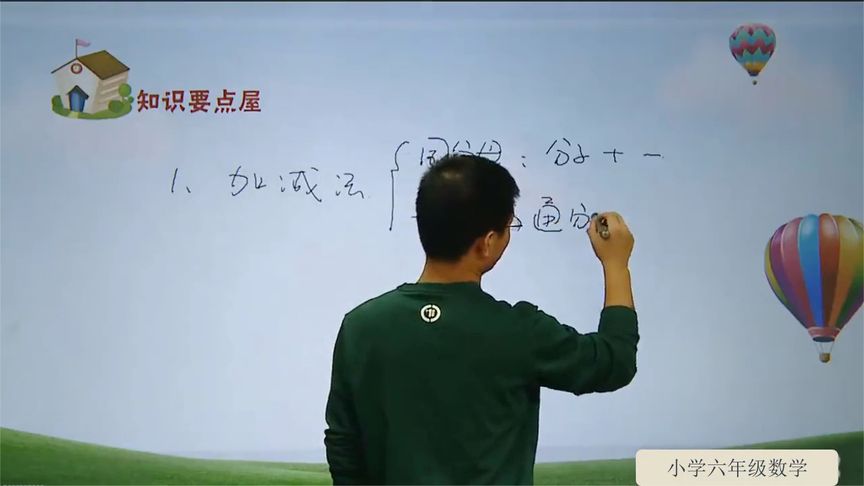 知识要点屋
同分母：分子＋－
1、加减法
通分
小学六年级数学